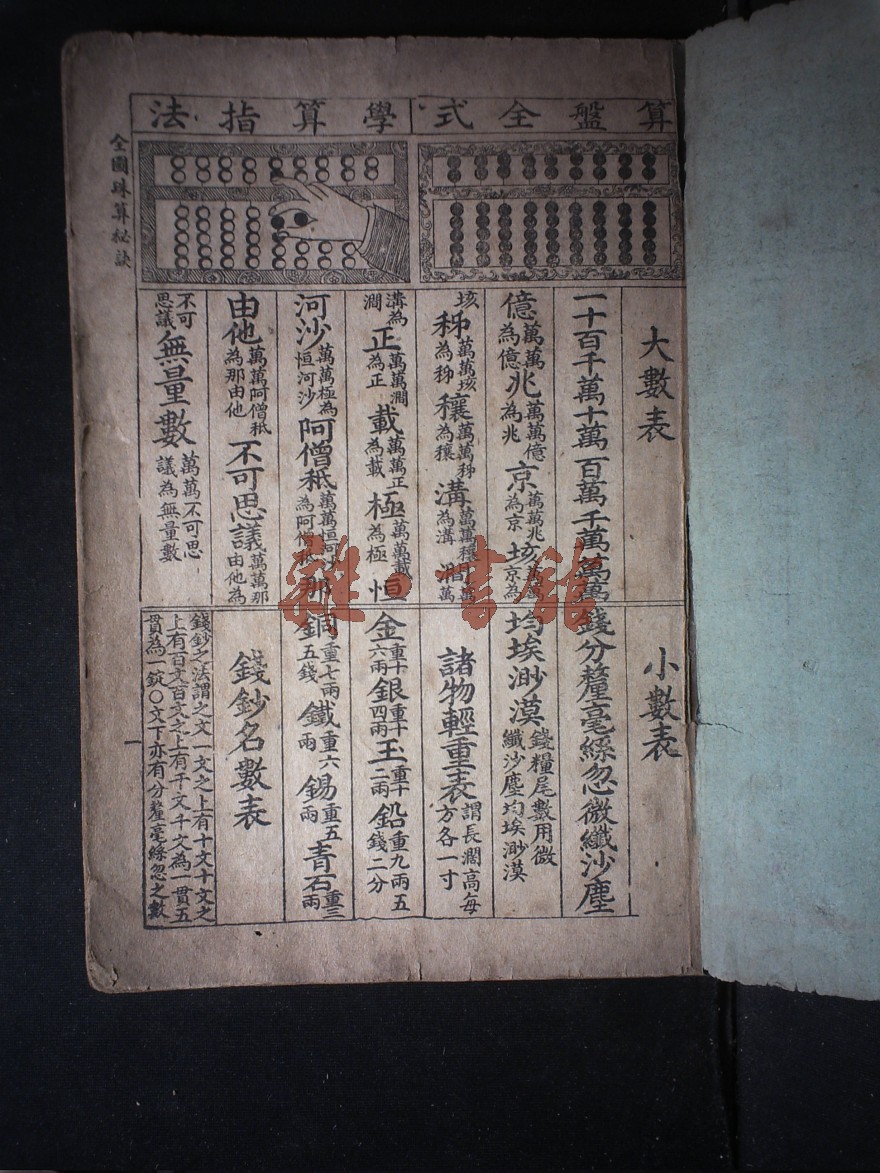 算盤全式
學算指法
全圖珠算秘訣
大數表
一十百千萬十萬百萬千萬萬萬
億萬萬為億兆萬萬億為兆京萬萬兆為京垓萬萬京為
垓秭萬萬垓為秭穰萬萬秭為穰溝萬萬穰為溝澗萬萬
溝為澗正萬萬澗為正載萬萬正為載極萬萬載為極恒
河沙萬萬極為恒河沙阿僧秪萬萬恒河沙為阿僧秪那
由他萬萬阿僧秪為那由他不可思議萬萬那由他為
不可思議無量數萬萬不可思議為無量數
小數表
錢分釐毫絲忽微纖沙塵
均埃渺漠錢糧尾數用微纖沙塵均埃渺漠
諸物輕重表謂長濶高每方各一寸
金重十六兩銀重十四兩玉重十二兩鉛重九兩五錢二分
銅重七兩五錢鐵重六兩錫重五兩青石重三兩
錢鈔名數表
錢鈔之法謂之文一文之上有十文十文之
上有百文百文之上有千文千文為一貫五
貫為一錠○文下亦有分釐毫絲忽之數
雜·書館